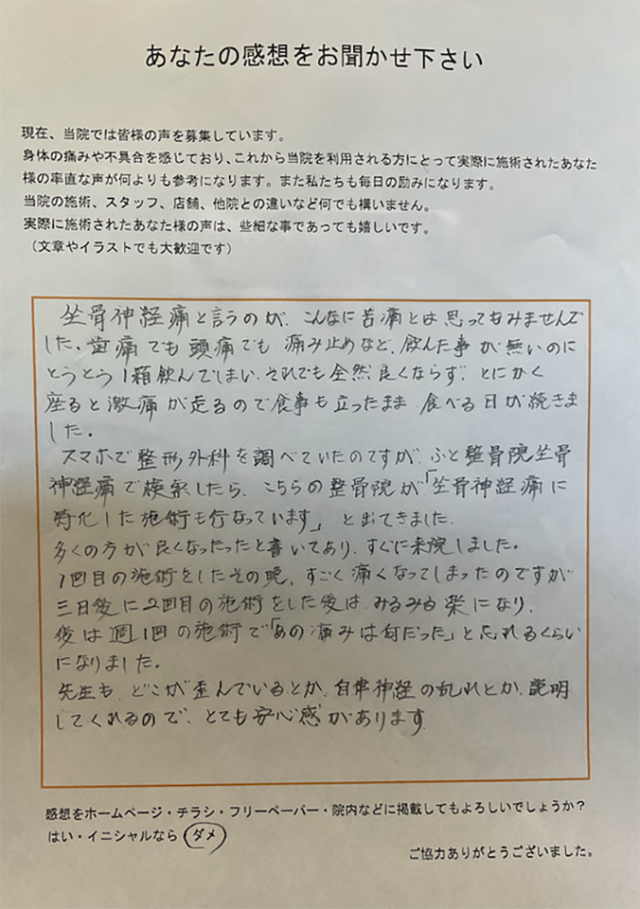 あなたの感想をお聞かせ下さい
現在、当院では皆様の声を募集しています。
身体の痛みや不具合を感じており、これから当院を利用される方にとって実際に施術されたあなた
様の率直な声が何よりも参考になります。また私たちも毎日の励みになります。
当院の施術、スタッフ、店舗、他院との違いなど何でも構いません。
実際に施術されたあなた様の声は、些細な事であっても嬉しいです。
（文章やイラストでも大歓迎です）
坐骨神経痛と言うのが、こんなに苦痛とは思ってもみませんで
した。歯痛でも頭痛でも痛み止めなど、飲んだ事が無いのに
とうとう1箱飲んでしまい、それでも全然良くならず、とにかく
座ると激痛が走るので食事も立ったまま食べる日が続きま
した。
スマホで整形外科を調べていたのですが、ふと整骨院坐骨
神経痛で検索したら、こちらの整骨院が、「坐骨神経痛に
特化した施術も行なっています」と出てきました。
多くの方が良くなったったと書いてあり、すぐに来院しました。
1回目の施術をしたその晩、すごく痛くなってしまったのですが
三日後に2回目の施術をした後は、みるみる楽になり、
後は週1回の施術で「あの痛みは何だった」と忘れるくらい
になりました。
先生も、どこが歪んでいるとか、自律神経の乱れとか、説明
してくれるので、とても安心感があります。
感想をホームページ・チラシ・フリーペーパー・院内などに掲載してもよろしいでしょうか？
はい・イニシャルなら ダメ
ご協力ありがとうございました。